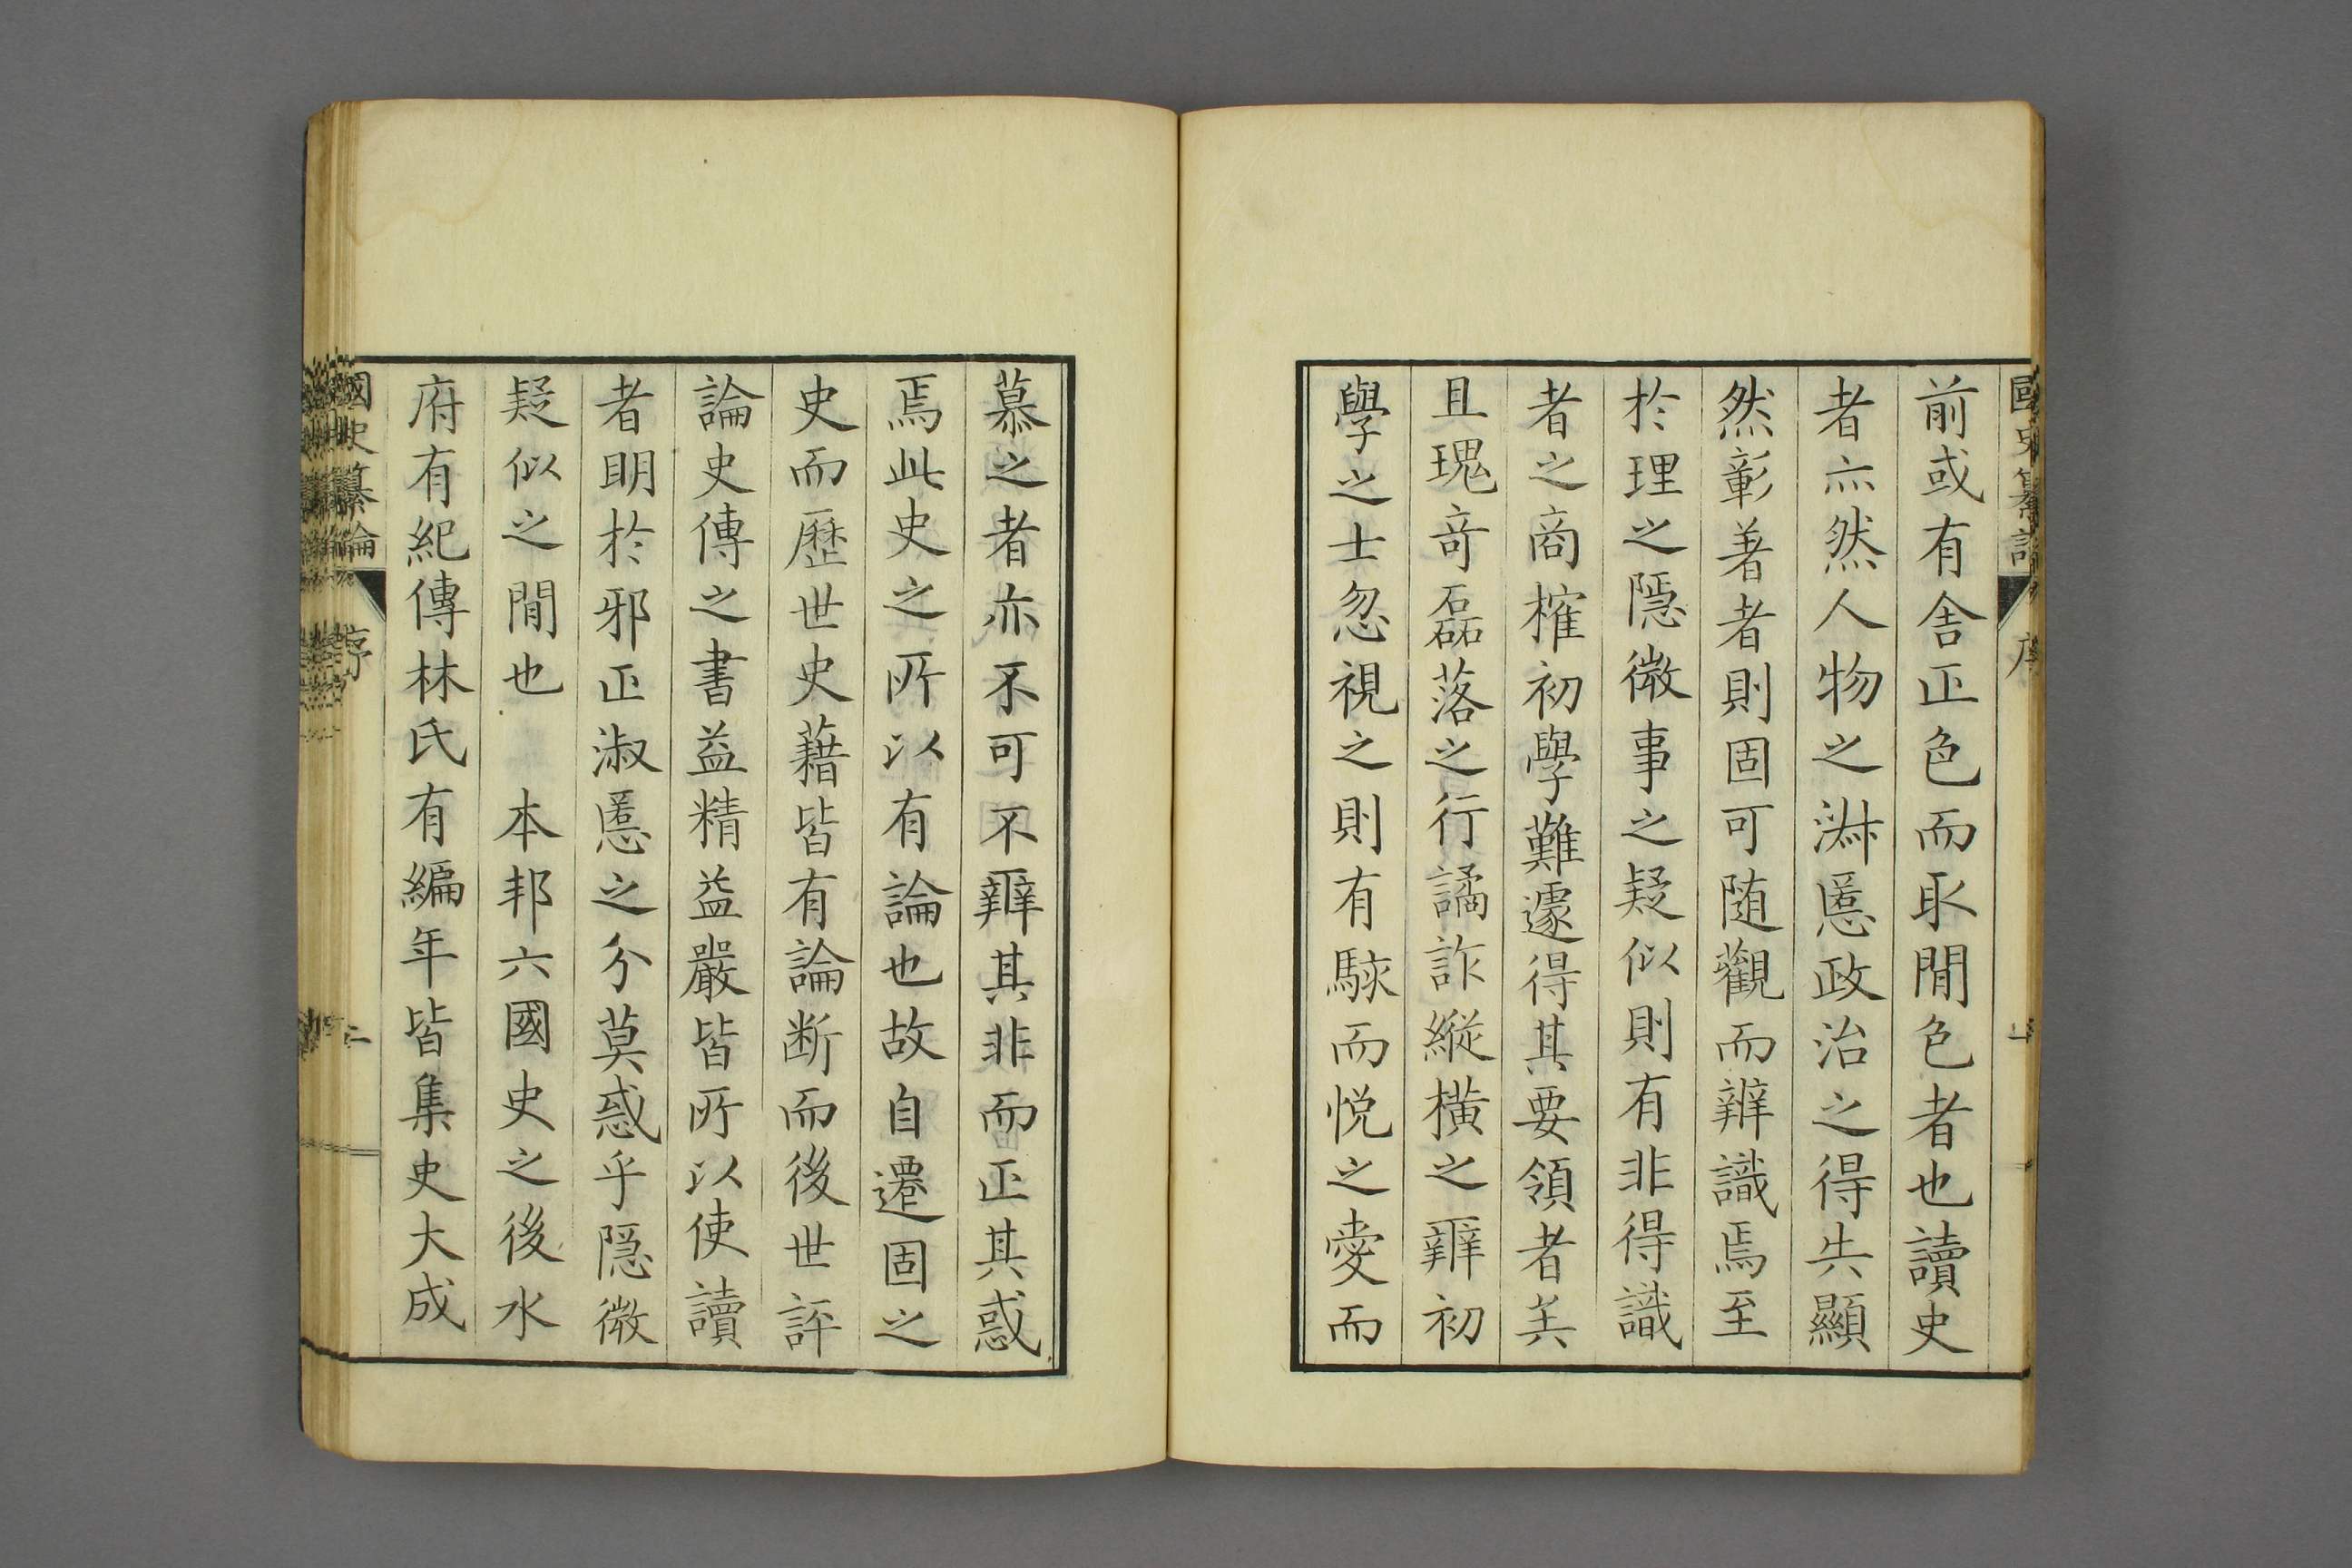 國史纂論 序
前或有舎正色而取閒色者也讀史
者亦然人物之淋慝政治之得失顯
然彰著者則固可随觀而辨識焉至
於理之隠微事之疑似則有非得識
者之商榷初學難遽得其要領者矣
且瑰竒磊落之行譎詐縱橫之辭初
學之士忽視之則有駭而悦之愛而
慕之者亦不可不辨其非而正其惑
焉此史之所以有論也故自遷固之
史而歴世史藉皆有論断而後世評
論史傳之書益精益嚴皆所以使讀
者明於邪正淑慝之分莫惑乎隠微
疑似之閒也　本邦六國史之後水
府有紀傳林氏有編年皆集史大成
國史纂論 序 二